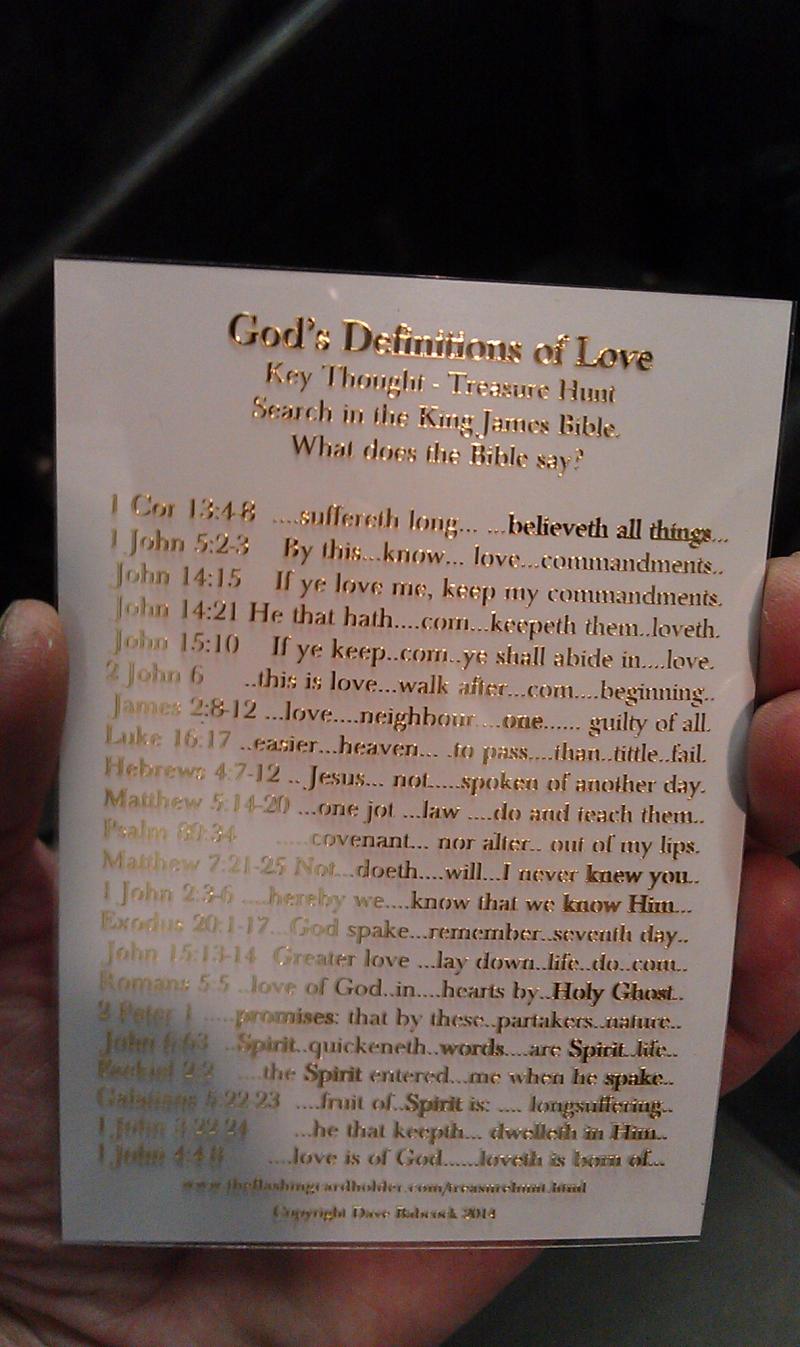 God's Definitions of Love
Key Thought - Treasure Hunt
Search in the King James Bible.
What does the Bible say?
1 Cor 13:4-8 ....suffereth long... ...believeth all things...
1 John 5:2-3 By this...know... love...commandments..
John 14:15 If ye love me, keep my commandments.
John 14:21 He that hath....com...keepeth them..loveth.
John 15:10 If ye keep..com..ye shall abide in....love.
2 John 6 ..this is love...walk after...com....beginning..
James 2:8-12 ...love....neighbour....one...... guilty of all.
Luke 16:17 ..easier...heaven... .to pass....than..tittle..fail.
Hebrews 4:7-12 .. Jesus... not.....spoken of another day.
Matthew 5:14-20 ...one jot ...law ....do and teach them..
Psalm 89:34 .....covenant... nor alter.. out of my lips.
Matthew 7:21-25 Not...doeth....will...I never knew you..
1 John 2:3-6 ....hereby we....know that we know Him...
Exodus 20:1-17...God spake...remember..seventh day..
John 15:13-14 Greater love ...lay down..life..do..com..
Romans 5:5 ..love of God..in....hearts by..Holy Ghost..
2 Peter 1 .....promises: that by these..partakers..nature..
John 6:63 ..Spirit..quickeneth..words....are Spirit..life..
Ezekiel 2:2 ....the Spirit entered...me when he spake..
Galatians 5:22-23 ....fruit of..Spirit is: .... longsuffering..
1 John 3:22-24 ...he that keepth... dwelleth in Him..
1 John 4:4-8 ....love is of God......loveth is born of...
www.theflashingcardholder.com/treasurehunt.html
Copyright Dave Babcock 2014